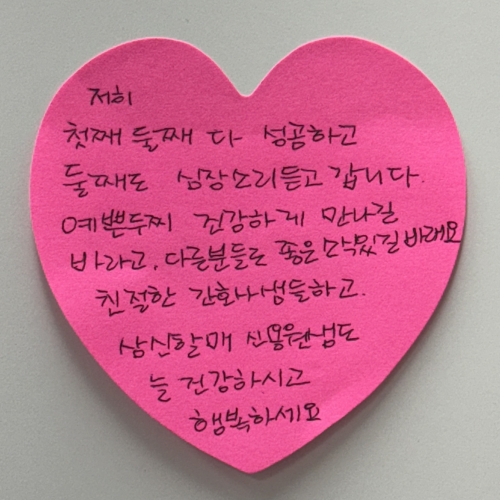 저희
첫째 둘째 다 성공하고
둘째도 심장소리듣고 갑니다.
예쁜두찌 건강하게 만나길
바라고, 다른분들도 좋은소식있길바래요
친절한 간호사샘들하고.
삼신할매 신용원샘도
늘 건강하시고
행복하세요